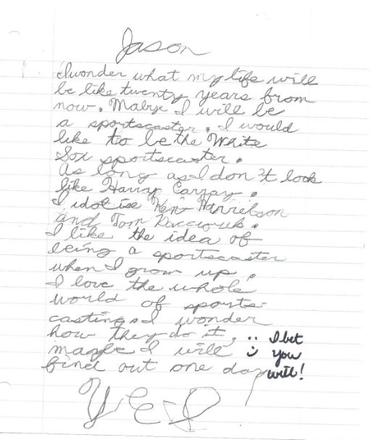 Jason
I wonder what my life will
be like twenty years from
now. Maybe I will be
a sportscaster. I would
like to be the White
Sox sportscaster.
As long as I don't look
like Harray Carray.
I idolise Harrelson
and Tom
I like the idea of
being a sportscaster
when I grow up.
I love the whole
world of sports
casting. I wonder
how they do it,
maybe I will
find out one day
I bet
you
will!
YES